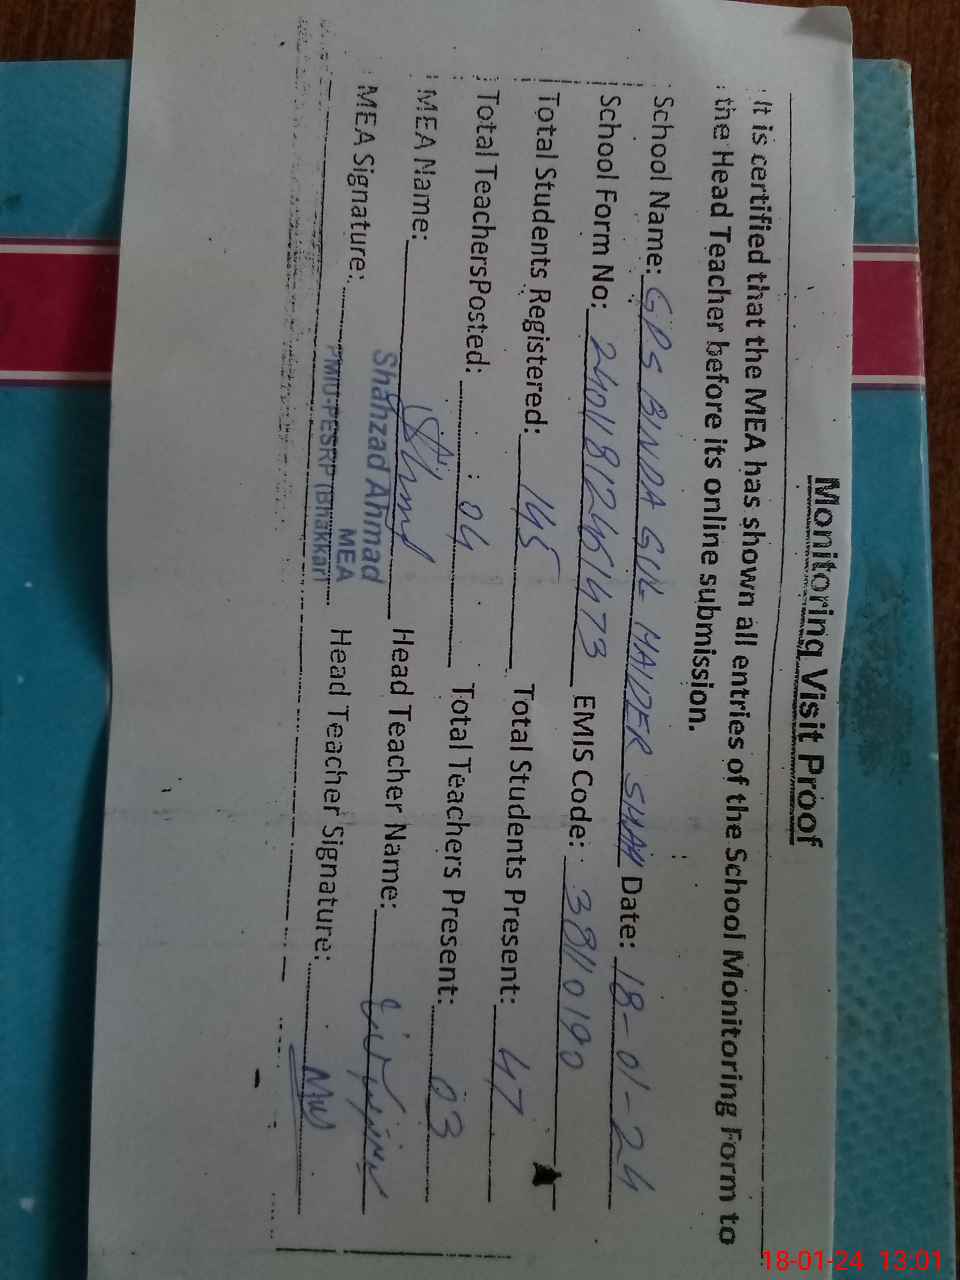 Monitoring Visit Proof
It is certified that the MEA has shown all entries of the School Monitoring Form to
the Head Teacher before its online submission.
School Name: GPS BINDA GUL HAIDER SHAH Date: 18-01-24
School Form No: EMIS Code: 38110190
Total Students Registered: 145 Total Students Present: 47
Total TeachersPosted: 04 Total Teachers Present: 03
MEA Name: Head Teacher Name:
Shahzad Ahmad
MEA
MEA Signature: Head Teacher Signature:
PMIU-PESRP (Bhakkar)
18-01-24 13:01